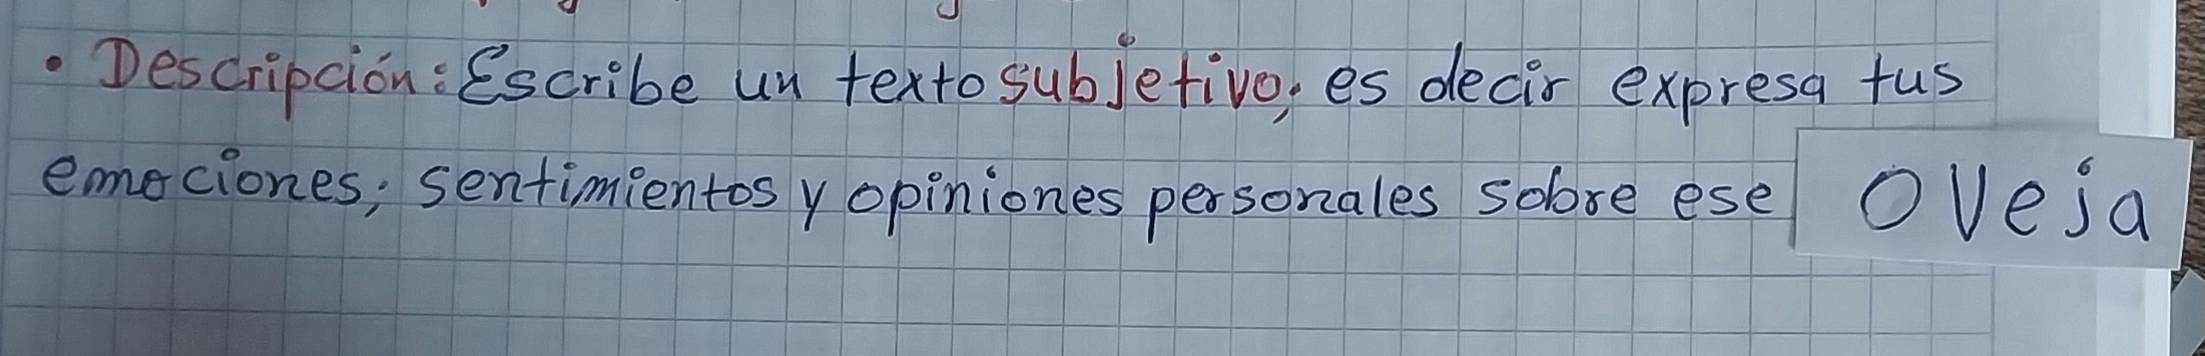 • Descripción: Escribe un texto subjetivo, es decir expresa tus
emociones, sentimientos y opiniones personales sobre ese oveja